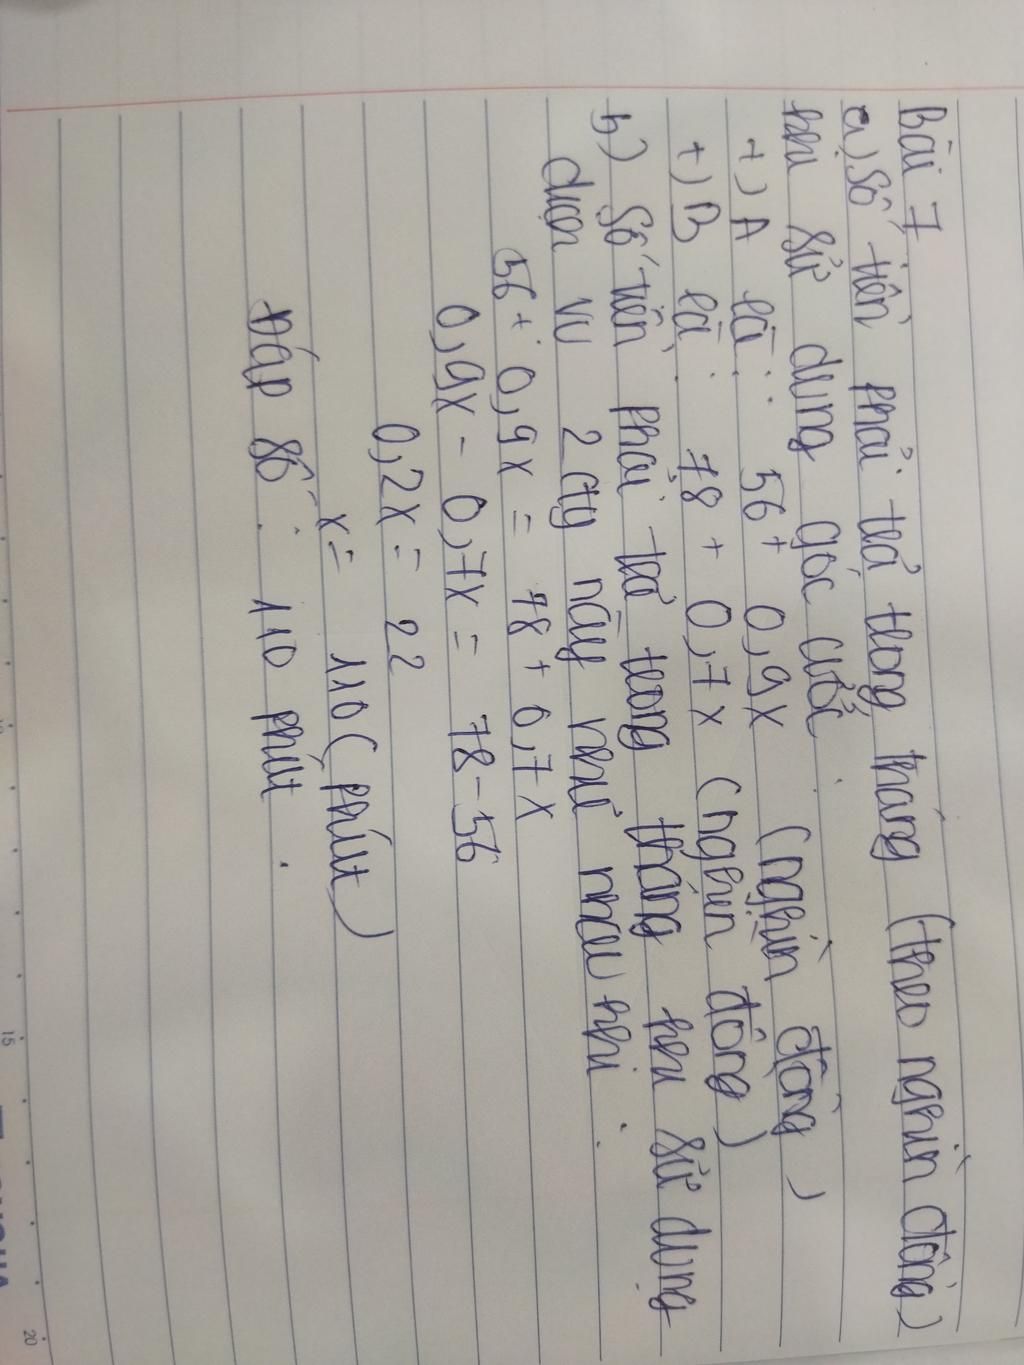 Bài 7
a) Số tiền phải trả trong tháng (theo nghìn đồng)
khi sử dụng gói cước
+) A là : 56 + 0,9x (nghìn đồng)
+) B là : 78 + 0,7x (nghìn đồng)
b) Số tiền phải trả trong tháng khi sử dụng
dịch vụ 2 cty này như nhau khi :
56 + 0,9x = 78 + 0,7x
0,9x - 0,7x = 78 - 56
0,2x = 22
x = 110 (phút)
Đáp số : 110 phút .
15
20